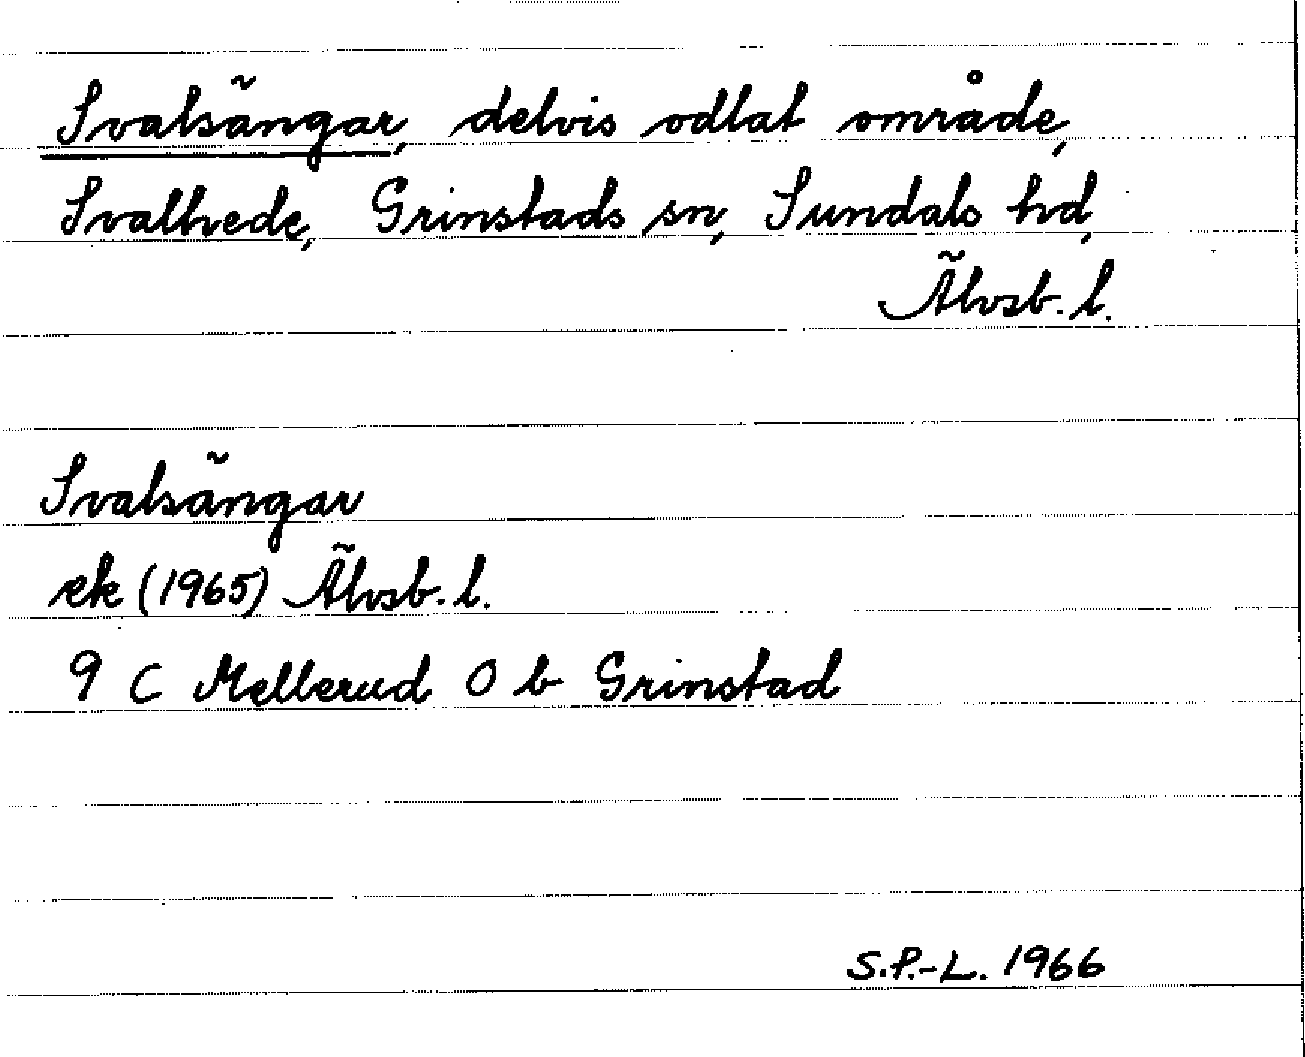 Svalsängar, delvis odlat område,
Svalhede, Grinstads sn, Sundals hd,
Älvsb. l.
Svalsängar
ek (1965) Älvsb. l.
9 C Mellerud O b Grinstad
S.P.-L. 1966